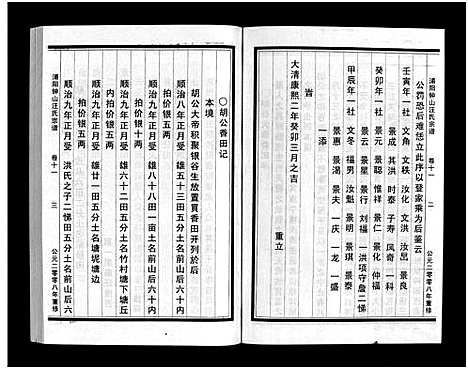 浦阳钟山汪氏宗谱 卷十一 二 公元二零零八年重修
公罚恐后难恁立此序以登家乘为后鉴云
壬寅年一社 文角 文秩 汝化 文洪 汝昂 景良
景成 其洪 时泰 子寿 风奇 一科
癸卯年一社 景元 景聪 惟祥 景仁 景化 仲福
景云 景星 景行 二项守詹二悌
甲辰年一社 文冬 福男 汝魁 景琪 景泰
景惠 景渴 景夫 一庆 一龙 一盛
一添
旹
大清康熙二年癸卯三月之吉 重立
〇胡公香田记
本境
胡公大帝积聚银谷生放置買香田开列於后
顺治八年正月受 雄八十八田一亩土名前山后六十内
拍价银十两
顺治九年正月受 雄六十二田五分土名竹村塘下塘丘
内拍价银五两
顺治九年正月受 雄廿一田五分土名塘坭塘边
拍价银五两
顺治九年正月受 洪氏之子二悌田五分土名前山后六
浦阳钟山汪氏宗谱 卷十一 三 公元二零零八年重修